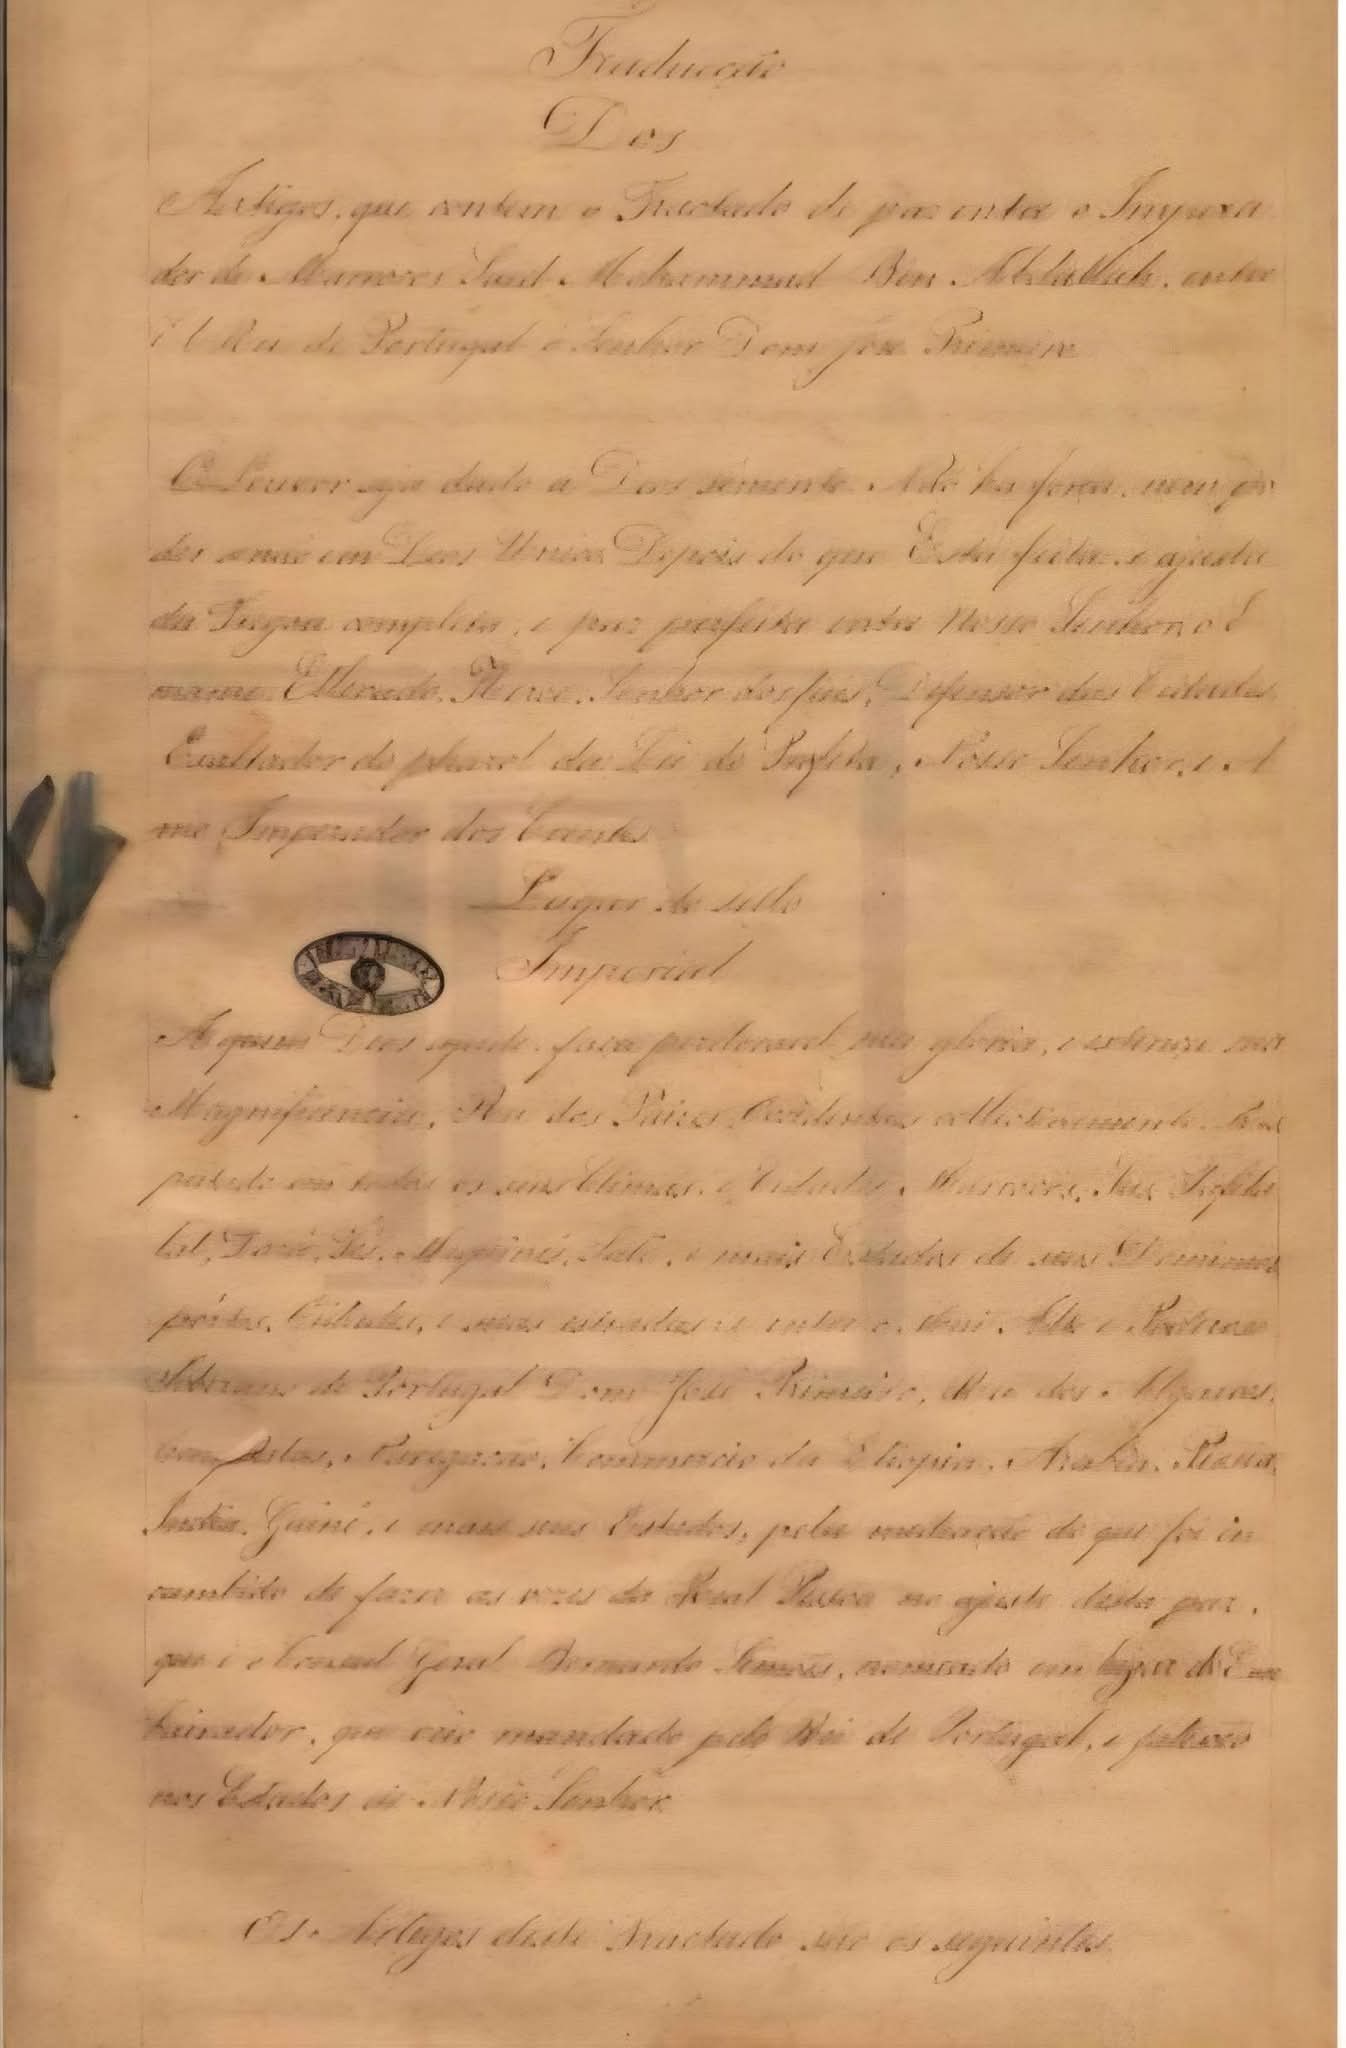 Traducção
Dos
Artigos, que contem o Tractado de paz entre o Impera
dor de Marrocos Mohammed Ben Abdallah, entre
El Rei de Portugal o Senhor Dom José Primeiro
O Louvor seja dado a Deos sómente. Não ha força, nem po
der senão em Deos Unico. Depois do que Está feita, e ajusta
da Tregoa completa, e paz perfeita entre Nosso Senhor, o I
mame Senhor dos fieis, Defensor das Cidades
Exaltador do pharol da Lei do Profeta, Nosso Senhor, e A
mo Imperador dos Crentes
Lugar do sello
Imperial
A quem Deos ajude, faça perduravel sua gloria, e extensa sua
Magnificencia, Rei dos Paizes Occidentaes collectivamente
em todos os seus Climas, e Cidades, Marrocos, Sus, Tafile
let, Fés, Mequinés, e mais Estados de seus Dominios
Cidades, e mais estradas: e entre o Alto e Poderoso
Soberano de Portugal Dom José Primeiro, Rei dos Algarves,
Conquistas, Navegação, Commercio da Ethiopia, Arabia, Persia,
India, Guiné, e mais seus Estados, pela mediação do que foi in
cumbido de fazer as vezes da Real Pessoa no ajuste desta paz,
que é o Consul Geral Bernardo Simões, nomeado em lugar do Em
baixador, que veio mandado pelo Rei de Portugal, e faleceo
nos Estados de Nosso Senhor.
Os Artigos deste Tractado são os seguintes